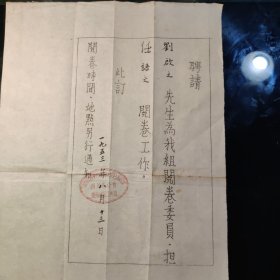 聘請
劉啟之 先生為我組閱卷委員·担
任 語文 閱卷工作。
此訂
一九五三年八月十三日
閱卷時間·地點另行通知